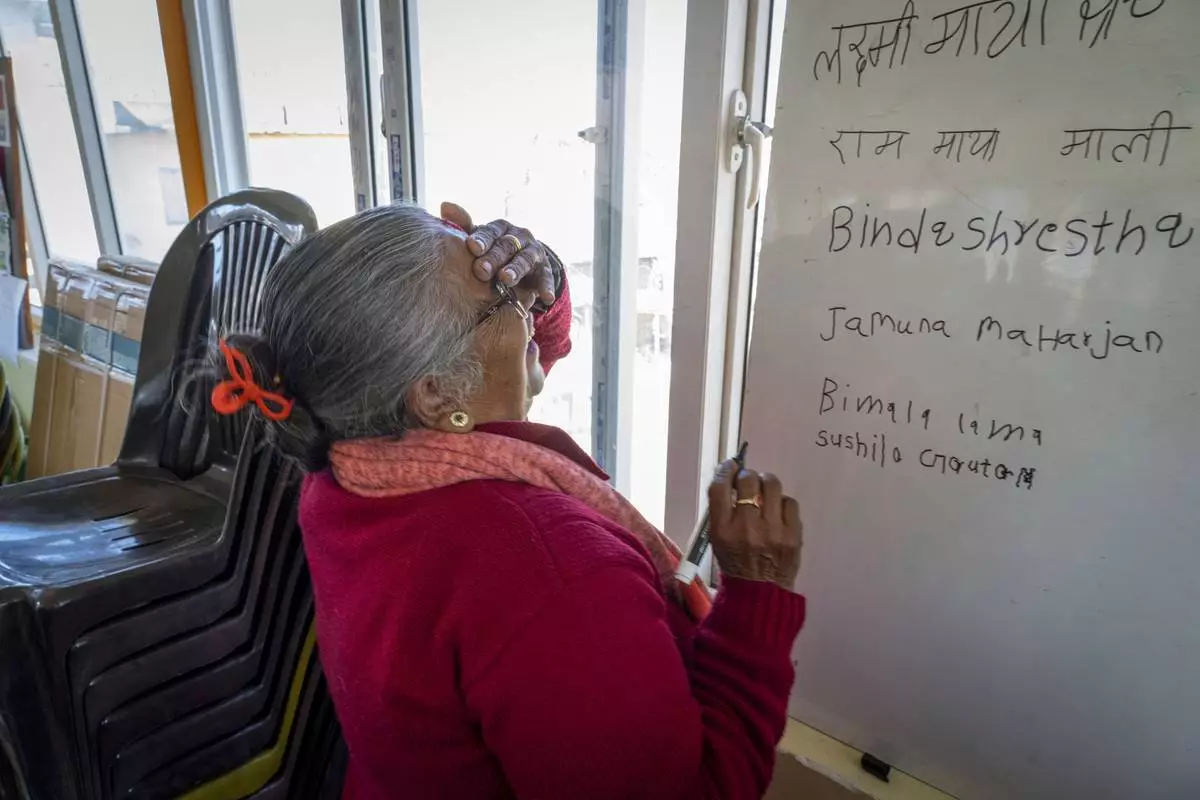 लक्ष्मी माया श्रे
राम माया माली
Binda shrestha
Jamuna maHarjan
Bimala lama
sushila Gautam